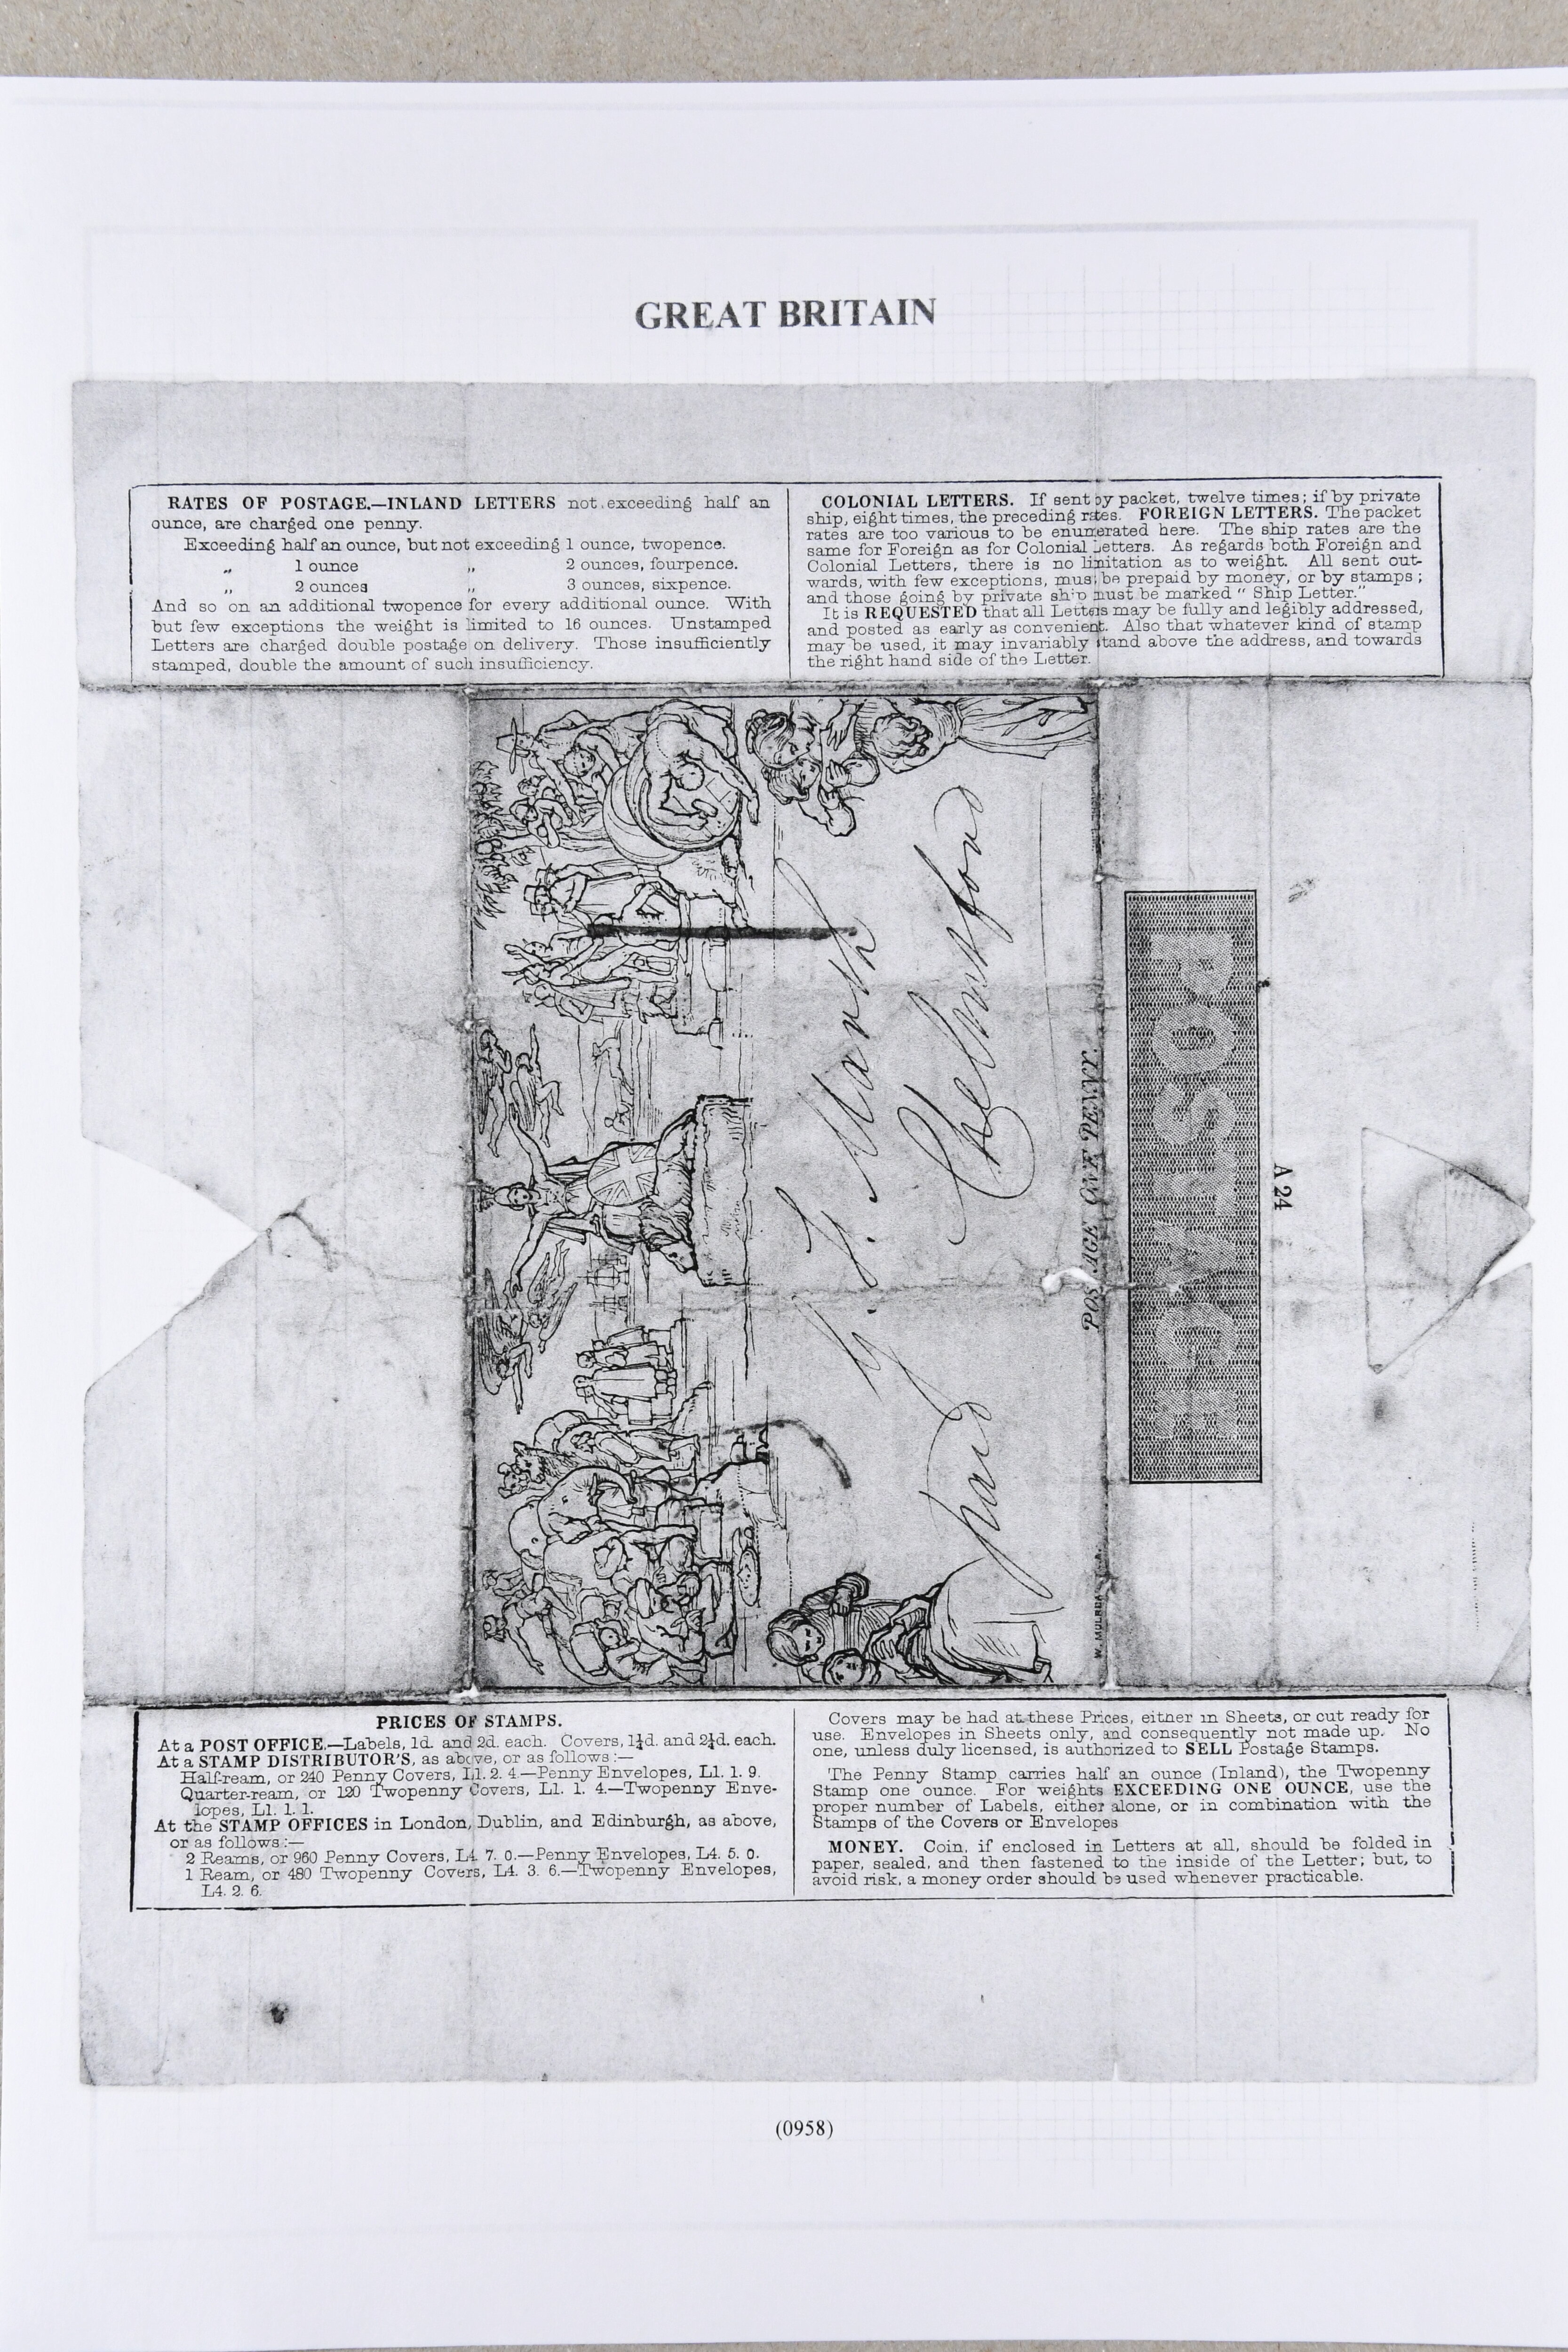 GREAT BRITAIN
RATES OF POSTAGE.—INLAND LETTERS not exceeding half an
ounce, are charged one penny.
Exceeding half an ounce, but not exceeding 1 ounce, twopence.
„ 1 ounce „ 2 ounces, fourpence.
„ 2 ounces „ 3 ounces, sixpence.
And so on an additional twopence for every additional ounce. With
but few exceptions the weight is limited to 16 ounces. Unstamped
Letters are charged double postage on delivery. Those insufficiently
stamped, double the amount of such insufficiency.
COLONIAL LETTERS. If sent by packet, twelve times; if by private
ship, eight times, the preceding rates. FOREIGN LETTERS. The packet
rates are too various to be enumerated here. The ship rates are the
same for Foreign as for Colonial Letters. As regards both Foreign and
Colonial Letters, there is no limitation as to weight. All sent out-
wards, with few exceptions, must be prepaid by money, or by stamps;
and those going by private ship must be marked “ Ship Letter.”
It is REQUESTED that all Letters may be fully and legibly addressed,
and posted as early as convenient. Also that whatever kind of stamp
may be used, it may invariably stand above the address, and towards
the right hand side of the Letter.
Marsh
Chelmsford
paid
POSTAGE ONE PENNY.
W. MULREADY
POSTAGE
A 24
PRICES OF STAMPS.
At a POST OFFICE.—Labels, 1d. and 2d. each. Covers, 1¼d. and 2¼d. each.
At a STAMP DISTRIBUTOR'S, as above, or as follows:—
Half-ream, or 240 Penny Covers, L1. 2. 4.—Penny Envelopes, L1. 1. 9.
Quarter-ream, or 120 Twopenny Covers, L1. 1. 4.—Twopenny Enve-
lopes, L1. 1. 1.
At the STAMP OFFICES in London, Dublin, and Edinburgh, as above,
or as follows:—
2 Reams, or 960 Penny Covers, L4. 7. 0.—Penny Envelopes, L4. 5. 0.
1 Ream, or 480 Twopenny Covers, L4. 3. 6.—Twopenny Envelopes,
L4. 2. 6.
Covers may be had at these Prices, either in Sheets, or cut ready for
use. Envelopes in Sheets only, and consequently not made up. No
one, unless duly licensed, is authorized to SELL Postage Stamps.
The Penny Stamp carries half an ounce (Inland), the Twopenny
Stamp one ounce. For weights EXCEEDING ONE OUNCE, use the
proper number of Labels, either alone, or in combination with the
Stamps of the Covers or Envelopes
MONEY. Coin, if enclosed in Letters at all, should be folded in
paper, sealed, and then fastened to the inside of the Letter; but, to
avoid risk, a money order should be used whenever practicable.
(0958)